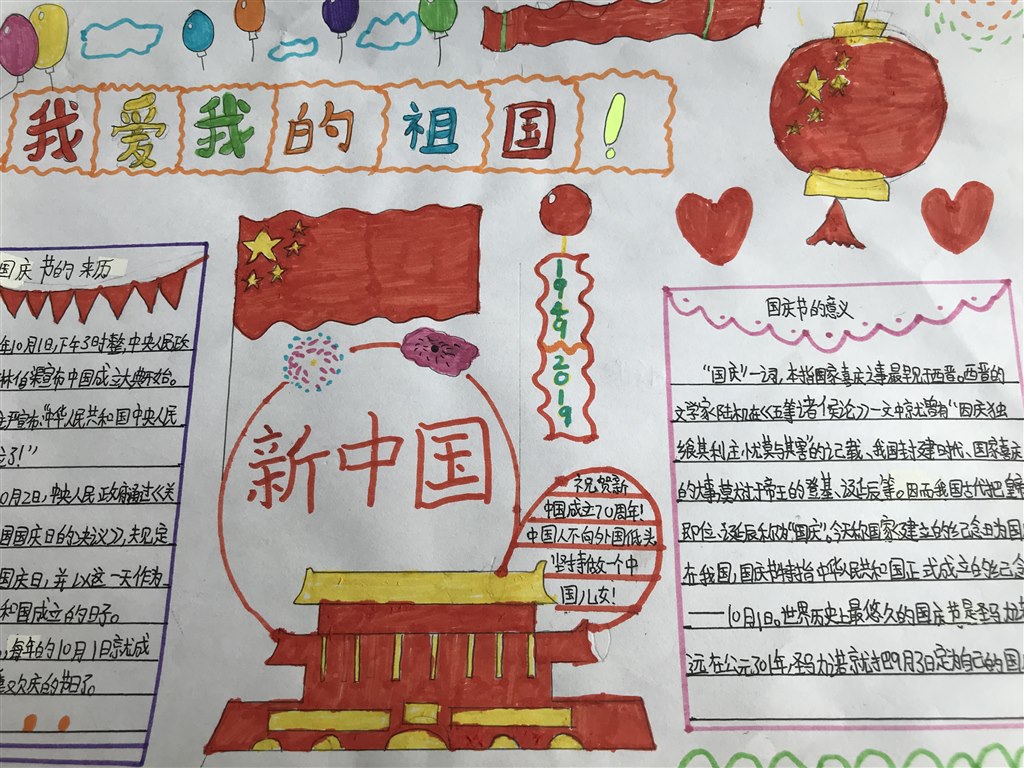 我爱我的祖国!
国庆节的来历
年10月1日,下午3时整,中央人民政
林伯渠宣布中国成立大典开始。
严宣布:“中华人民共和国中央人民
了!”
0月2日,中央人民政府通过《关
国国庆日的决议》,并规定
国庆日,并以这一天作为
和国成立的日子。
,每年的10月1日就成
欢庆的节日了。
新中国
1949
2019
祝贺新
中国成立70周年!
中国人不向外国低头
坚持做一个中
国儿女!
国庆节的意义
“国庆”一词,本指国家喜庆之事最早见于西晋。西晋的
文学家陆机在《五等诸侯论》一文中就曾有“国庆独
飨其利主忧莫与其害”的记载、我国封建时代、国家喜庆
的大事莫大过于帝王的登基、诞辰等。因而我国古代把皇帝
即位、诞辰称为“国庆”。今天称国家建立的纪念日为国
在我国,国庆节特指中华人民共和国正式成立的纪念
——10月1日。世界历史上最悠久的国庆节是圣马力
远在公元301年,圣马力诺就把9月3日定为自己的国